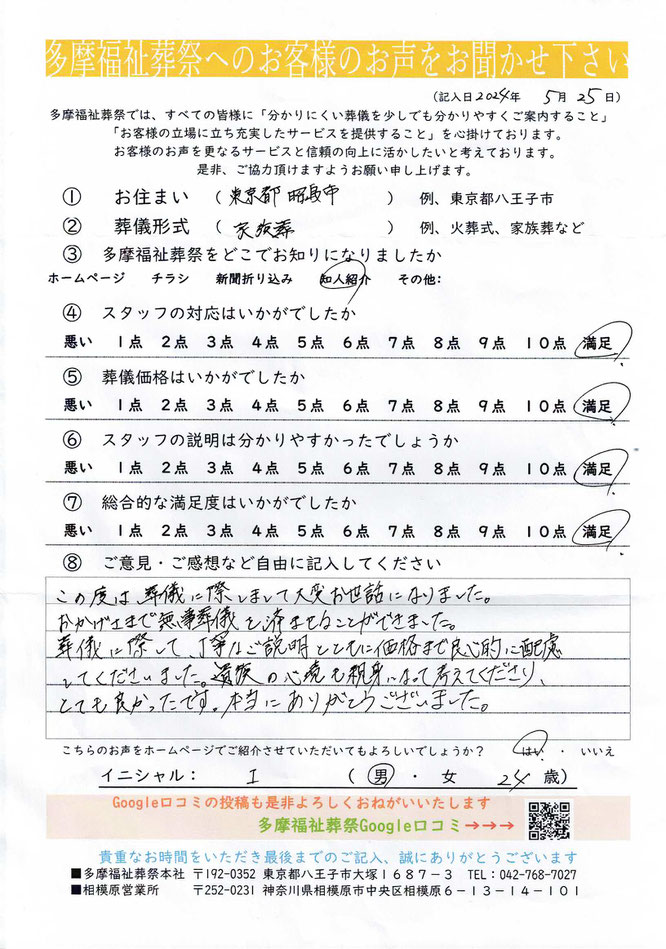 多摩福祉葬祭へのお客様のお声をお聞かせ下さい
(記入日2024年 5月 25日)
多摩福祉葬祭では、すべての皆様に「分かりにくい葬儀を少しでも分かりやすくご案内すること」
「お客様の立場に立ち充実したサービスを提供すること」を心掛けております。
お客様のお声を更なるサービスと信頼の向上に活かしたいと考えております。
是非、ご協力頂けますようお願い申し上げます。
① お住まい (東京都 昭島市) 例、東京都八王子市
② 葬儀形式 (家族葬) 例、火葬式、家族葬など
③ 多摩福祉葬祭をどこでお知りになりましたか
ホームページ チラシ 新聞折り込み 知人紹介 その他:
④ スタッフの対応はいかがでしたか
悪い 1点 2点 3点 4点 5点 6点 7点 8点 9点 10点 満足
⑤ 葬儀価格はいかがでしたか
悪い 1点 2点 3点 4点 5点 6点 7点 8点 9点 10点 満足
⑥ スタッフの説明は分かりやすかったでしょうか
悪い 1点 2点 3点 4点 5点 6点 7点 8点 9点 10点 満足
⑦ 総合的な満足度はいかがでしたか
悪い 1点 2点 3点 4点 5点 6点 7点 8点 9点 10点 満足
⑧ ご意見・ご感想など自由に記入してください
この度は葬儀に際しまして大変お世話になりました。
おかげさまで無事葬儀を済ませることができました。
葬儀に際して、丁寧なご説明とともに価格まで良心的に配慮
してくださいました。遺族の心境も親身になって考えてくださり、
とても良かったです。本当にありがとうございました。
こちらのお声をホームページでご紹介させていただいてもよろしいでしょうか? はい ・ いいえ
イニシャル: I (男 ・ 女 24歳)
Google口コミの投稿も是非よろしくおねがいいたします
多摩福祉葬祭Google口コミ→→→
貴重なお時間をいただき最後までのご記入、誠にありがとうございます
■多摩福祉葬祭本社 〒192-0352 東京都八王子市大塚1687-3 TEL:042-768-7027
■相模原営業所 〒252-0231 神奈川県相模原市中央区相模原6-13-14-101